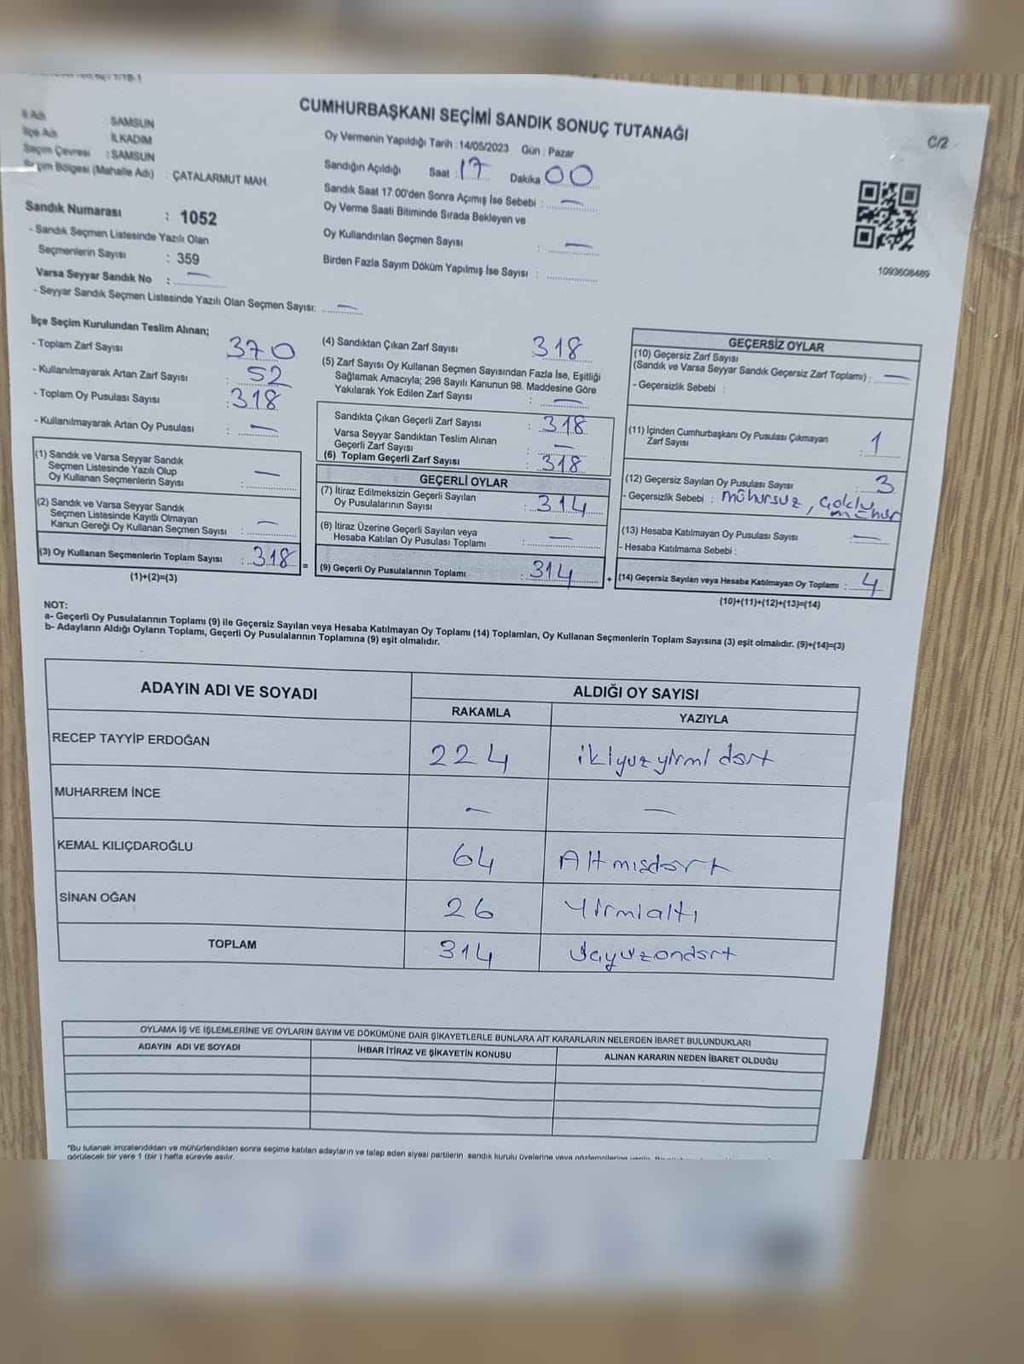 CUMHURBAŞKANI SEÇİMİ SANDIK SONUÇ TUTANAĞI
C/2
İl Adı SAMSUN
İlçe Adı İLKADIM
Seçim Çevresi : SAMSUN
Seçim Bölgesi (Mahalle Adı) : ÇATALARMUT MAH.
Oy Vermenin Yapıldığı Tarih : 14/05/2023 Gün : Pazar
Sandığın Açıldığı Saat : 17 Dakika 00
Sandık Saat 17.00'den Sonra Açımış İse Sebebi : —
Oy Verme Saati Bitiminde Sırada Bekleyen ve
Oy Kullandırılan Seçmen Sayısı : —
Birden Fazla Sayım Döküm Yapılmış İse Sayısı :
1093608469
Sandık Numarası : 1052
- Sandık Seçmen Listesinde Yazılı Olan
Seçmenlerin Sayısı : 359
Varsa Seyyar Sandık No : —
- Seyyar Sandık Seçmen Listesinde Yazılı Olan Seçmen Sayısı: —
İlçe Seçim Kurulundan Teslim Alınan;
- Toplam Zarf Sayısı 370
- Kullanılmayarak Artan Zarf Sayısı : 52
- Toplam Oy Pusulası Sayısı : 318
- Kullanılmayarak Artan Oy Pusulası : —
(1) Sandık ve Varsa Seyyar Sandık
Seçmen Listesinde Yazılı Olup
Oy Kullanan Seçmenlerin Sayısı : —
(2) Sandık ve Varsa Seyyar Sandık
Seçmen Listesinde Kayıtlı Olmayan
Kanun Gereği Oy Kullanan Seçmen Sayısı : —
(3) Oy Kullanan Seçmenlerin Toplam Sayısı : 318
(1)+(2)=(3)
=
(4) Sandıktan Çıkan Zarf Sayısı 318
(5) Zarf Sayısı Oy Kullanan Seçmen Sayısından Fazla İse, Eşitliği
Sağlamak Amacıyla; 298 Sayılı Kanunun 98. Maddesine Göre
Yakılarak Yok Edilen Zarf Sayısı : —
Sandıkta Çıkan Geçerli Zarf Sayısı : 318
Varsa Seyyar Sandıktan Teslim Alınan
Geçerli Zarf Sayısı : —
(6) Toplam Geçerli Zarf Sayısı : 318
GEÇERLİ OYLAR
(7) İtiraz Edilmeksizin Geçerli Sayılan
Oy Pusulalarının Sayısı : 314
(8) İtiraz Üzerine Geçerli Sayılan veya
Hesaba Katılan Oy Pusulası Toplamı : —
(9) Geçerli Oy Pusulalarının Toplamı : 314
+
GEÇERSİZ OYLAR
(10) Geçersiz Zarf Sayısı
(Sandık ve Varsa Seyyar Sandık Geçersiz Zarf Toplamı) : —
- Geçersizlik Sebebi :
(11) İçinden Cumhurbaşkanı Oy Pusulası Çıkmayan
Zarf Sayısı : 1
(12) Geçersiz Sayılan Oy Pusulası Sayısı : 3
- Geçersizlik Sebebi : mühürsüz, çoklu mühür
(13) Hesaba Katılmayan Oy Pusulası Sayısı : —
- Hesaba Katılmama Sebebi :
(14) Geçersiz Sayılan veya Hesaba Katılmayan Oy Toplamı : 4
(10)+(11)+(12)+(13)=(14)
NOT:
a- Geçerli Oy Pusulalarının Toplamı (9) ile Geçersiz Sayılan veya Hesaba Katılmayan Oy Toplamı (14) Toplamları, Oy Kullanan Seçmenlerin Toplam Sayısına (3) eşit olmalıdır. (9)+(14)=(3)
b- Adayların Aldığı Oyların Toplamı, Geçerli Oy Pusulalarının Toplamına (9) eşit olmalıdır.
ADAYIN ADI VE SOYADI ALDIĞI OY SAYISI
RAKAMLA YAZIYLA
RECEP TAYYİP ERDOĞAN 224 ikiyuzyirmi dört
MUHARREM İNCE — —
KEMAL KILIÇDAROĞLU 64 Altmışdört
SİNAN OĞAN 26 Yirmialtı
TOPLAM 314 Üçyüzondört
OYLAMA İŞ VE İŞLEMLERİNE VE OYLARIN SAYIM VE DÖKÜMÜNE DAİR ŞİKAYETLERLE BUNLARA AİT KARARLARIN NELERDEN İBARET BULUNDUKLARI
ADAYIN ADI VE SOYADI İHBAR İTİRAZ VE ŞİKAYETİN KONUSU ALINAN KARARIN NEDEN İBARET OLDUĞU
*Bu tutanak imzalandıktan ve mühürlendikten sonra seçime katılan adayların ve talep eden siyasi partilerin sandık kurulu üyelerine veya
görülecek bir yere 1 (bir) hafta süreyle asılır.